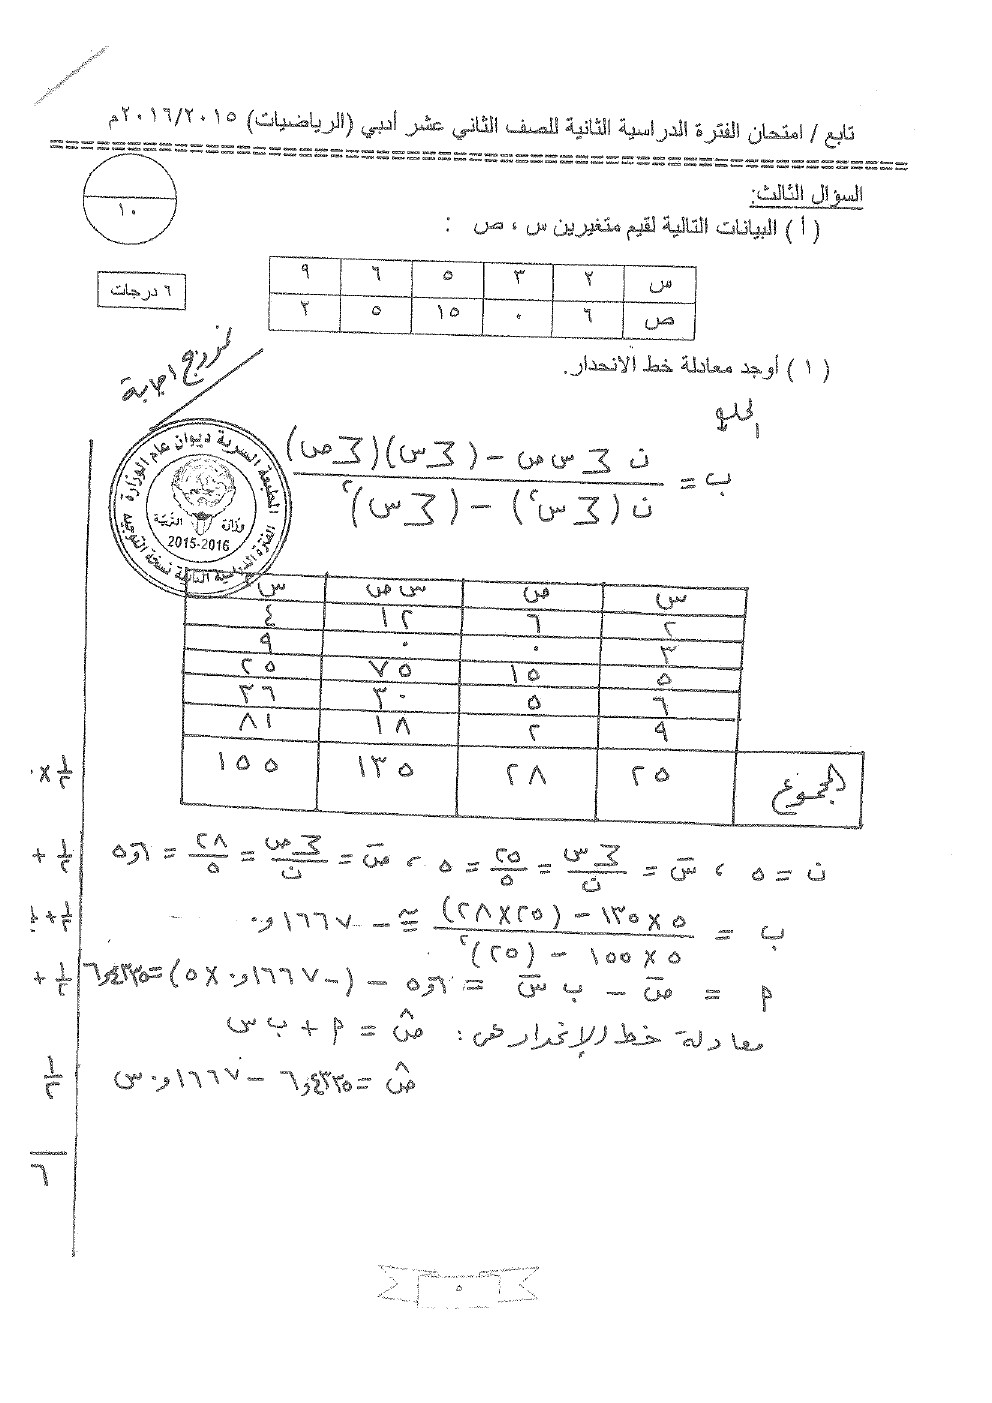 تابع / امتحان الفترة الدراسية الثانية للصف الثاني عشر أدبي (الرياضيات) ٢٠١٦/٢٠١٥م
السؤال الثالث:
١٠
( أ ) البيانات التالية لقيم متغيرين س ، ص :
٦ درجات
س ٢ ٣ ٥ ٦ ٩
ص ٦ ٠ ١٥ ٥ ٢
( ١ ) أوجد معادلة خط الانحدار.
نموذج اجابة
الحل
ب = (ن ∑ س ص − (∑ س)(∑ ص)) / (ن (∑ س²) − (∑ س)²)
المطبعة السرية ديوان عام الوزارة
وزارة التربية
2015-2016
الفترة الدراسية الثانية نسخة التوجيه
س ص س ص س²
٢ ٦ ١٢ ٤
٣ ٠ ٠ ٩
٥ ١٥ ٧٥ ٢٥
٦ ٥ ٣٠ ٣٦
٩ ٢ ١٨ ٨١
المجموع ٢٥ ٢٨ ١٣٥ ١٥٥
ن = ٥ ، س̄ = ∑ س / ن = ٢٥ / ٥ = ٥ ، ص̄ = ∑ ص / ن = ٢٨ / ٥ = ٥,٦
+ ١/٢
ب = (٥ × ١٣٥ − (٢٥ × ٢٨)) / (٥ × ١٥٥ − (٢٥)²) ≅ − ٠,١٦٦٧
م = ص̄ − ب س̄ = ٥,٦ − (− ٠,١٦٦٧ × ٥) = ٦,٤٣٣٥
+ ١/٢
معادلة خط الإنحدار هي: ص̂ = م + ب س
ص̂ = ٦,٤٣٣٥ − ٠,١٦٦٧ س
١/٢
٦
٥